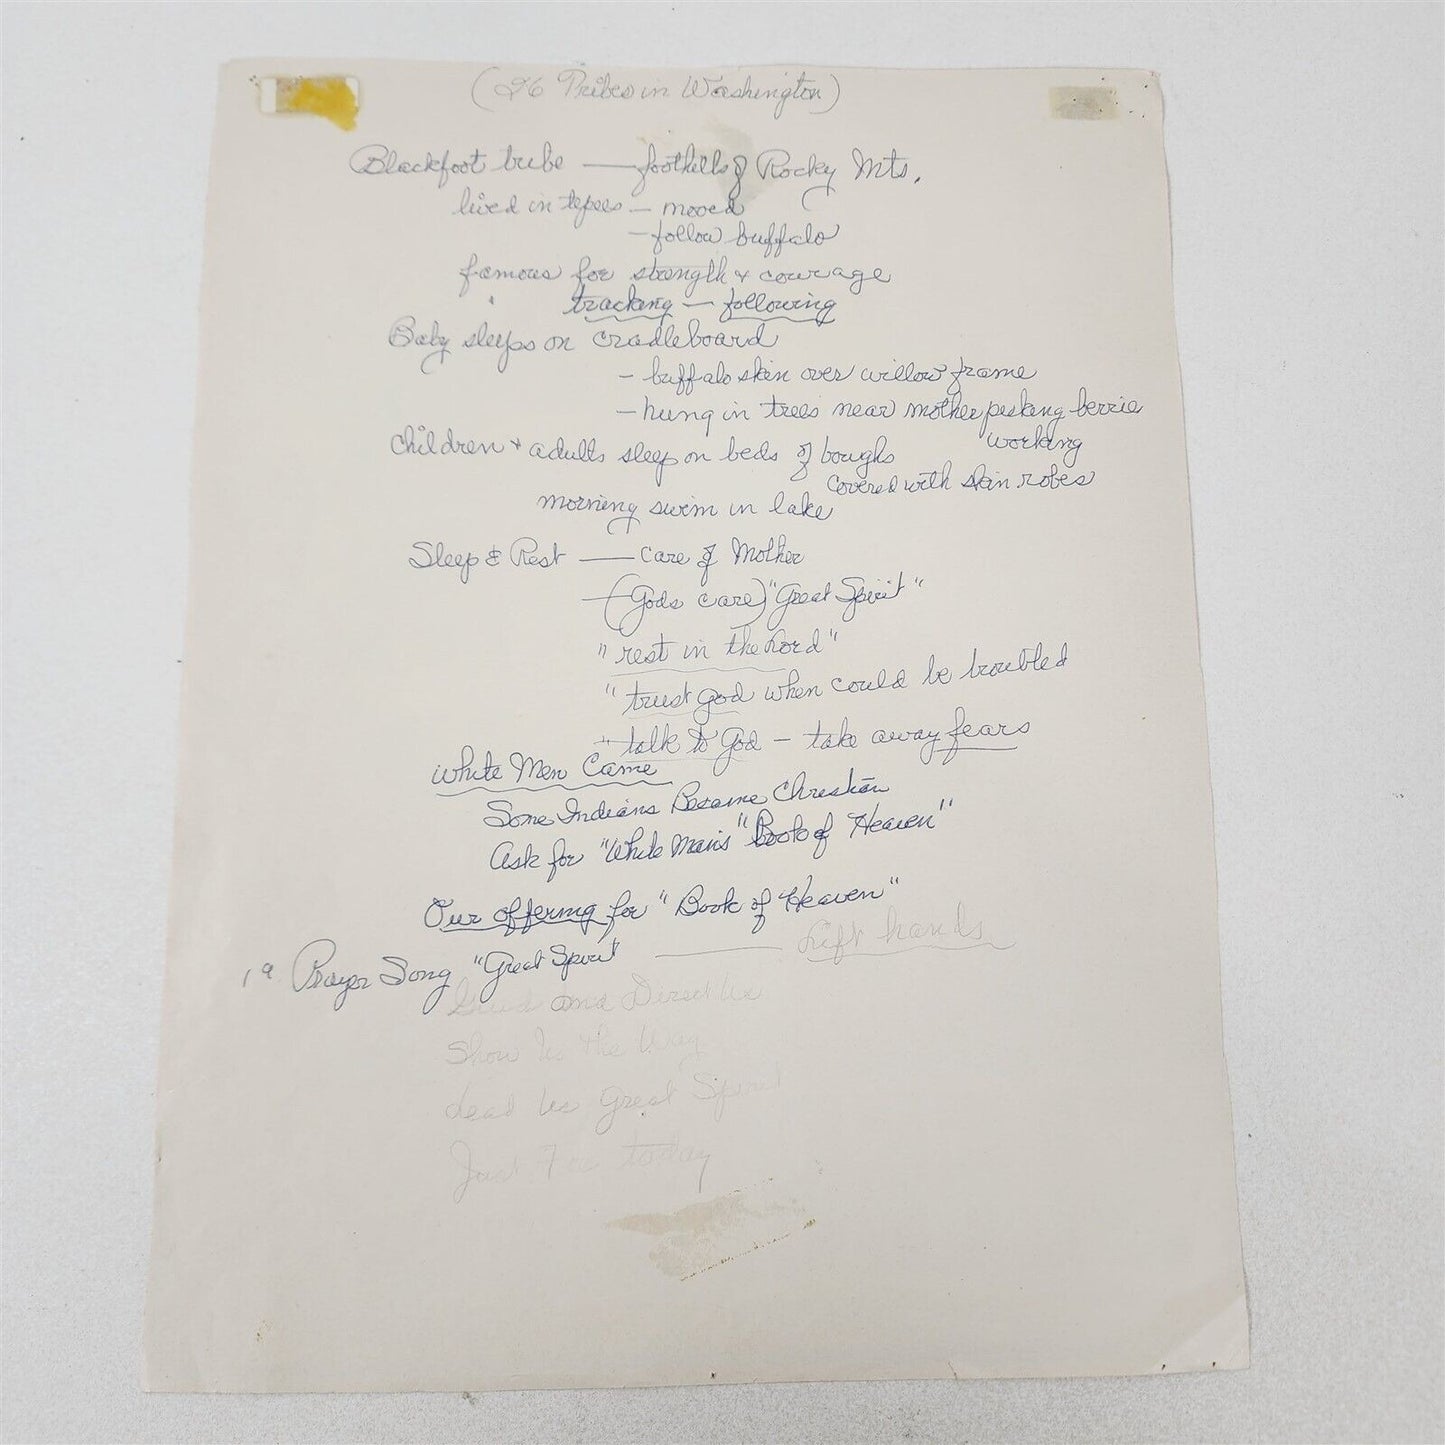 (26 Tribes in Washington)
Blackfoot tribe — foothills of Rocky Mts.
lived in tepees — moved
— follow buffalo
famous for strength & courage
" tracking — following
Baby sleeps on cradleboard
- buffalo skin over willow frame
- hung in trees near mother picking berries
working
Children & adults sleep on beds of boughs
covered with skin robes
morning swim in lake
Sleep & Rest — care of Mother
— (Gods care) "Great Spirit"
" rest in the Lord"
" trust God when could be troubled
" talk to God — take away fears
White Men Came
Some Indians Became Christian
Ask for "White Man's" Book of Heaven"
Our offering for "Book of Heaven"
Prayer Song "Great Spirit — Lift hands
Guide and Direct Us
Show Us the Way
Lead Us Great Spirit
Just For today